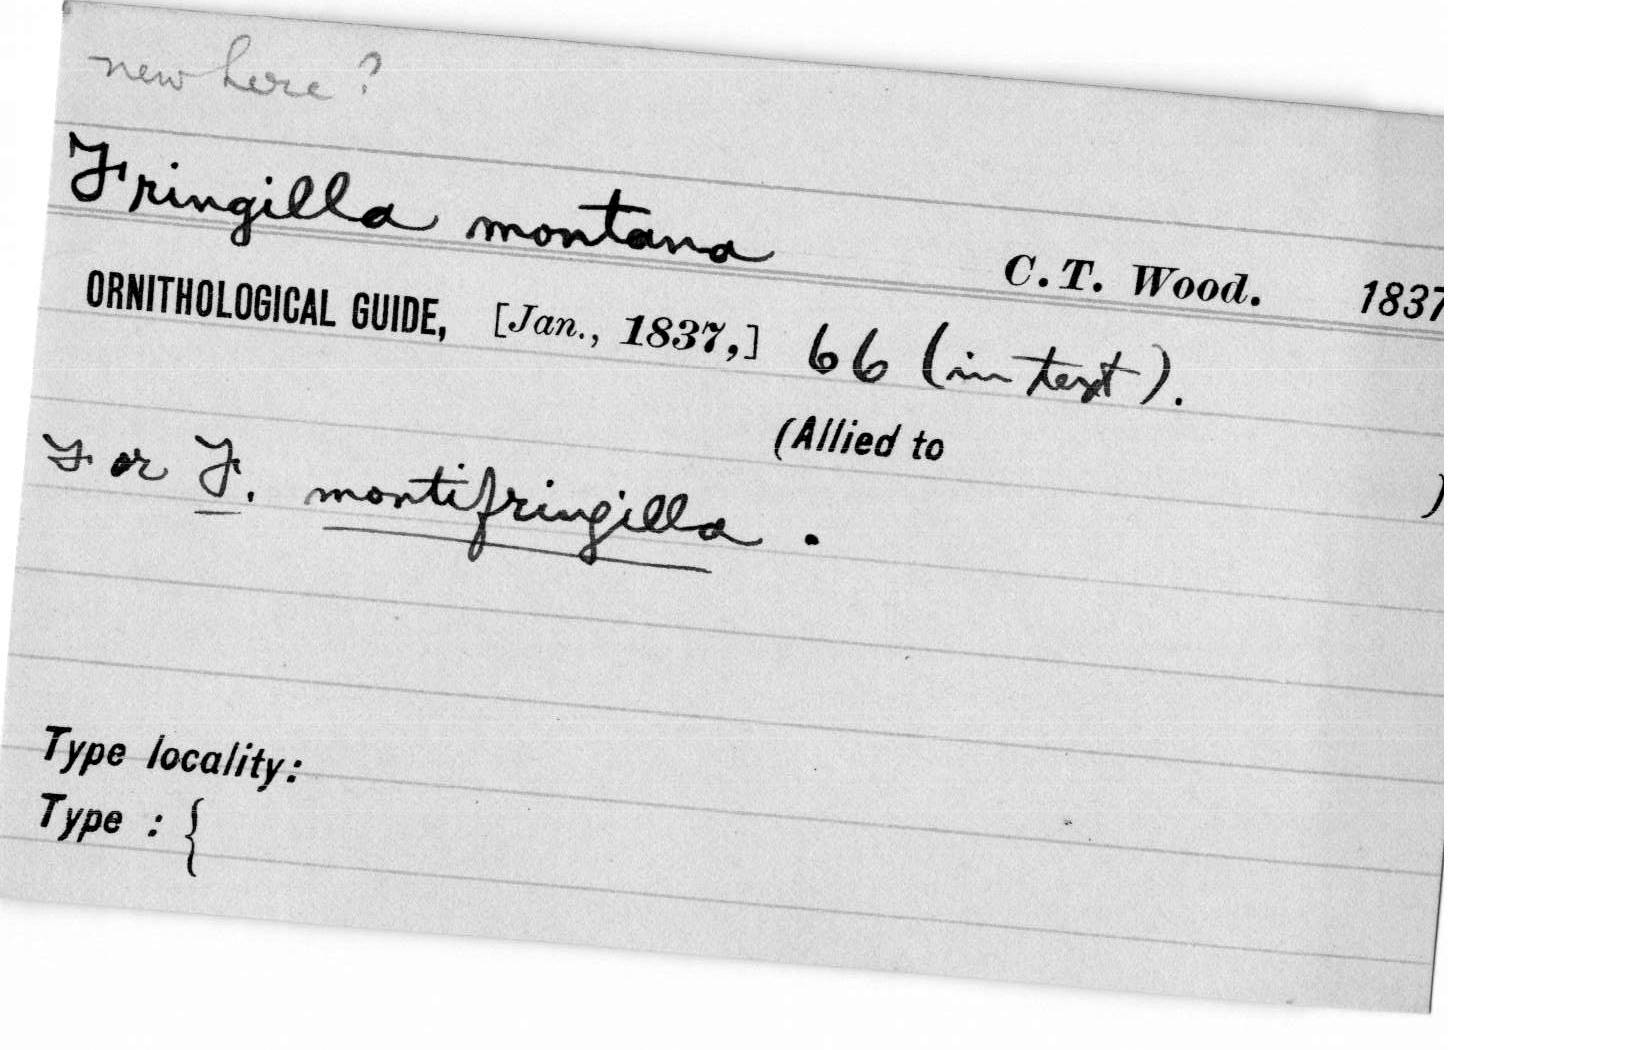 new here?
Fringilla montana
C. T. Wood. 1837
ORNITHOLOGICAL GUIDE, [Jan., 1837,] 66 (in text).
(Allied to )
For F. montifringilla.
Type locality:
Type : {